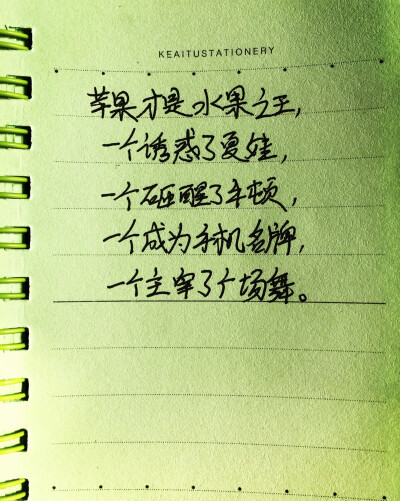 KEAITUSTATIONERY
苹果才是水果之王,
一个诱惑了夏娃,
一个砸醒了牛顿,
一个成为手机名牌,
一个主宰了广场舞。